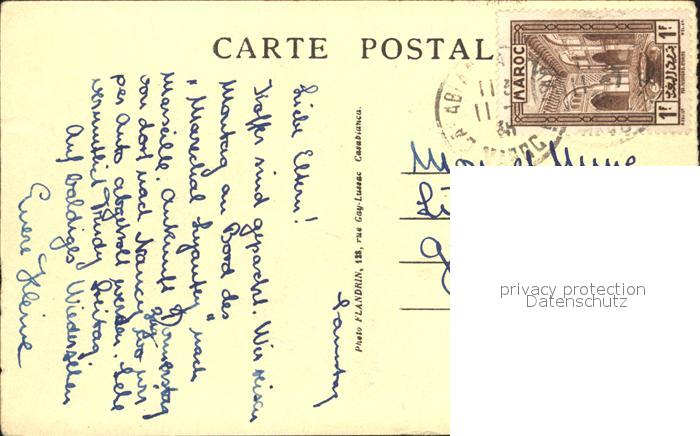 CARTE POSTAL
MAROC
1F
1F
Samstag
Liebe Eltern!
Koffer sind gepackt. Wir reisen
Montag an Bord des
"Marechal Lyautey" nach
Marseille. Ankunft Donnerstag
von dort nach Nancy wo wir
per Auto abgeholt werden. Sehe
vermutlich Trudy Freitag.
Auf baldiges Wiedersehen
Euere Kleine
Photo FLANDRIN, 128, rue Gay-Lussac Casablanca.
privacy protection
Datenschutz